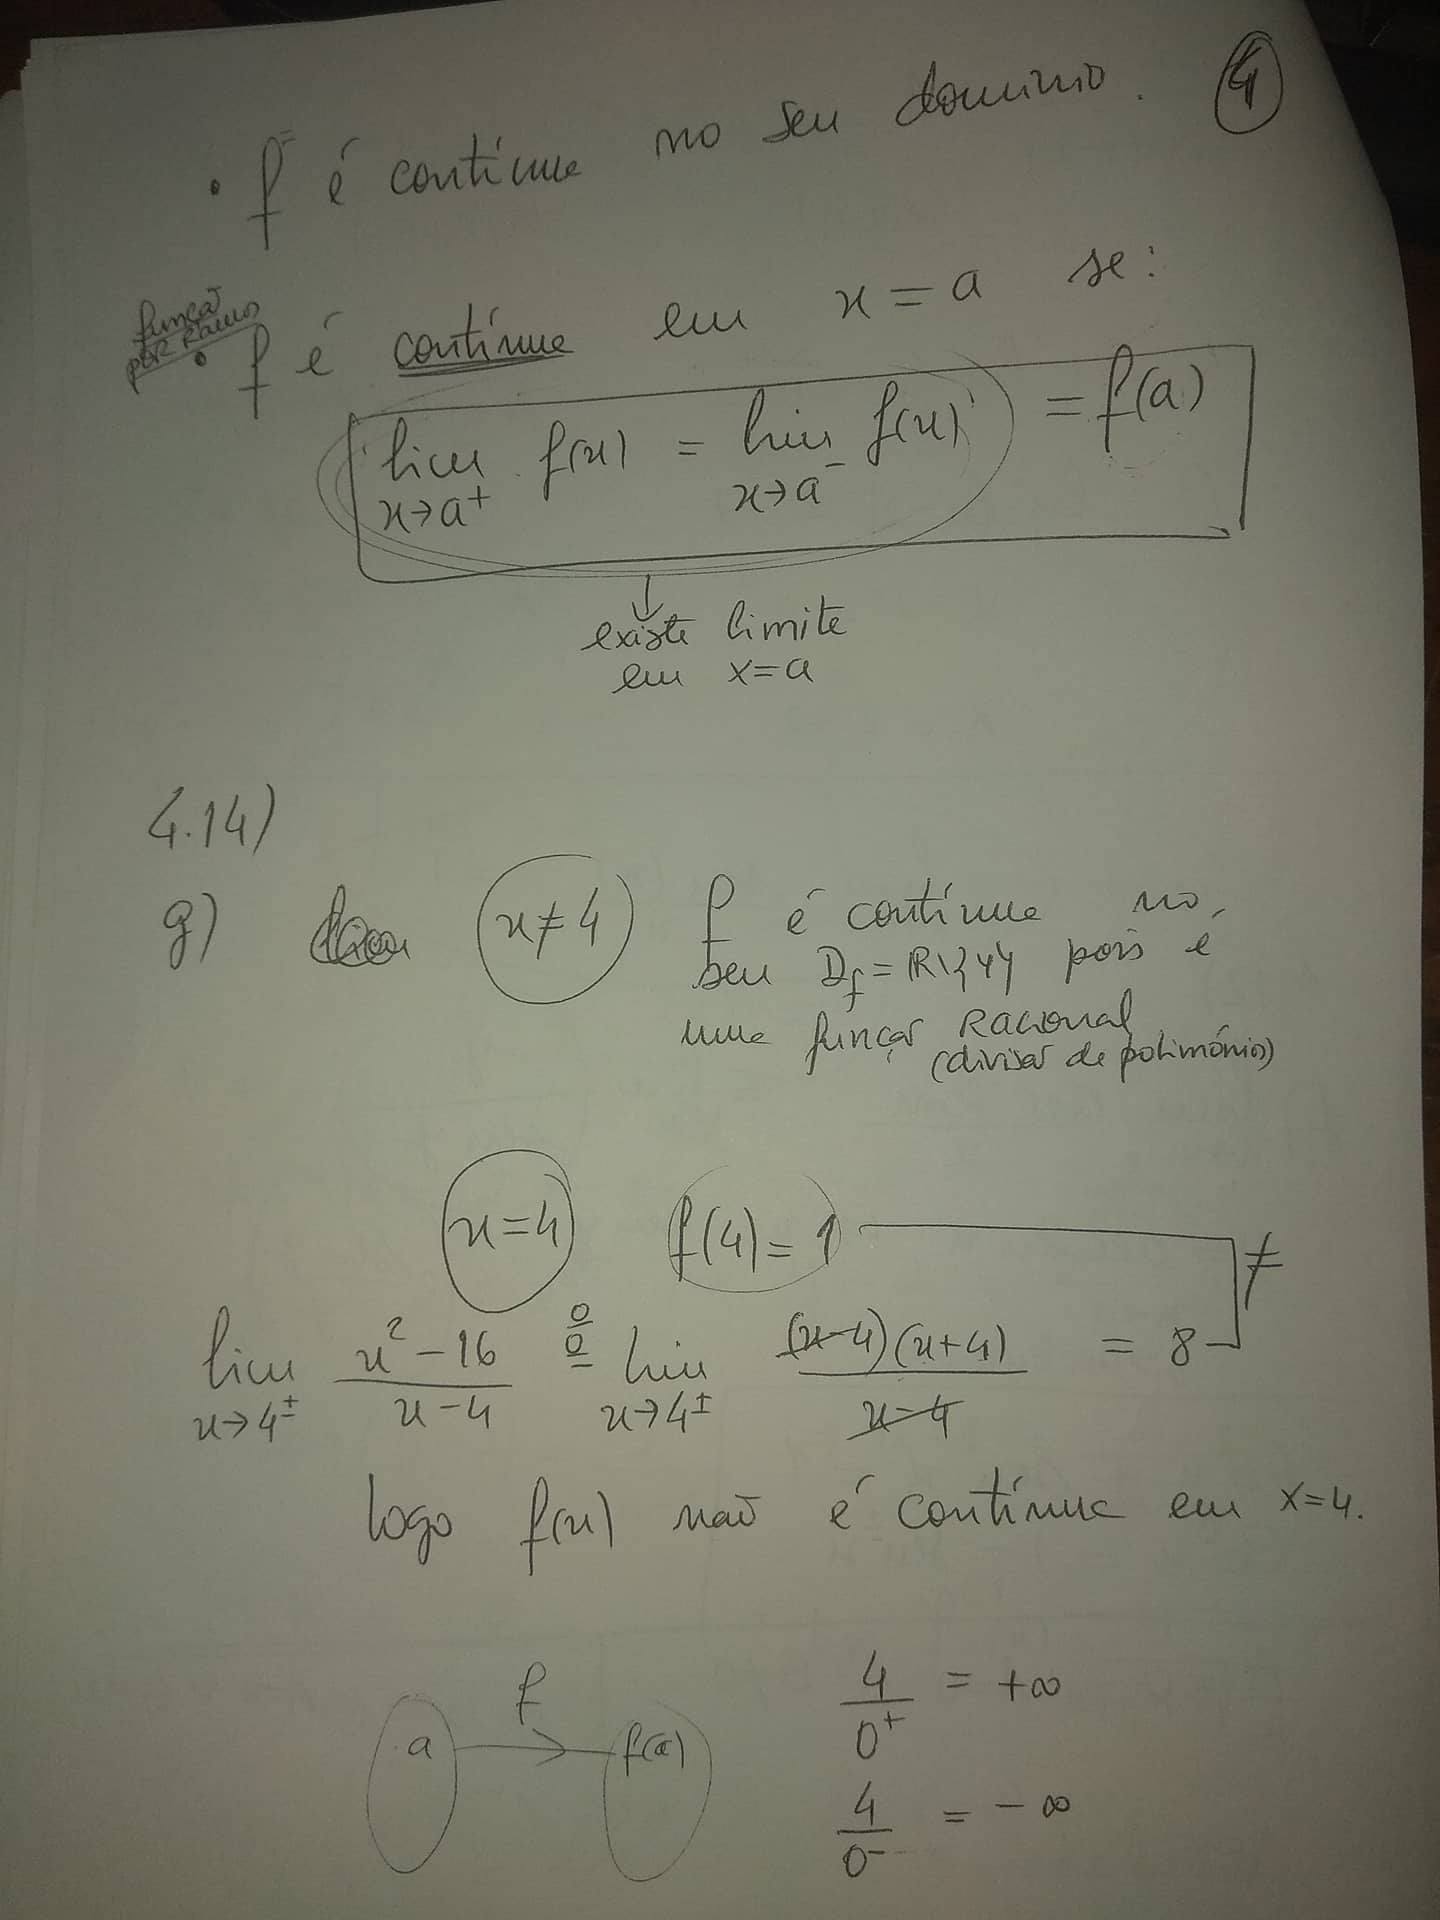 4
• f é contínua no seu domínio.
função
por Ramos
• f é contínua em x = a se:
lim f(x) = lim f(x) = f(a)
x→a⁺ x→a⁻
existe limite
em x=a
4.14)
g) x≠4 f é contínua no
seu D_f = ℝ\{4} pois é
uma função Racional
(divisão de polinómios)
x=4 f(4) = 1 ≠
lim x²-16 0/0 = lim (x-4)(x+4) = 8
x→4± x-4 x→4± x-4
logo f(x) não é contínua em x=4.
f
a f(a)
4/0⁺ = +∞
4/0⁻ = -∞